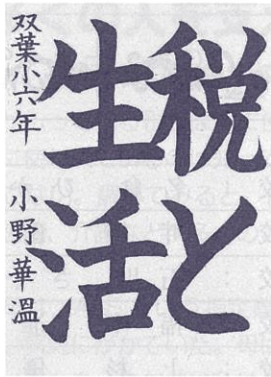 税と
生活
双葉小六年 小野華温